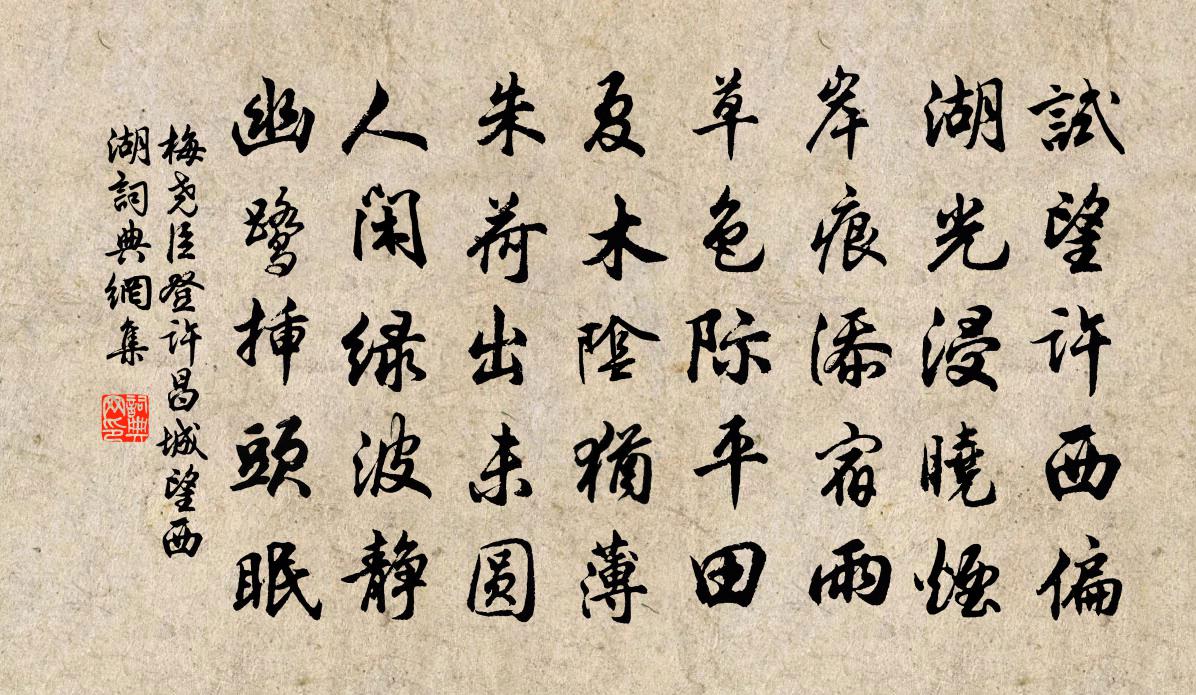 試望许西偏
湖光浸曉煙
岸痕添宿雨
草色际平田
夏木陰猶薄
朱荷出未圆
人闲緑波静
幽鹭挿頭眠
梅尧臣登许昌城望西
湖詞典網集
詞典网印